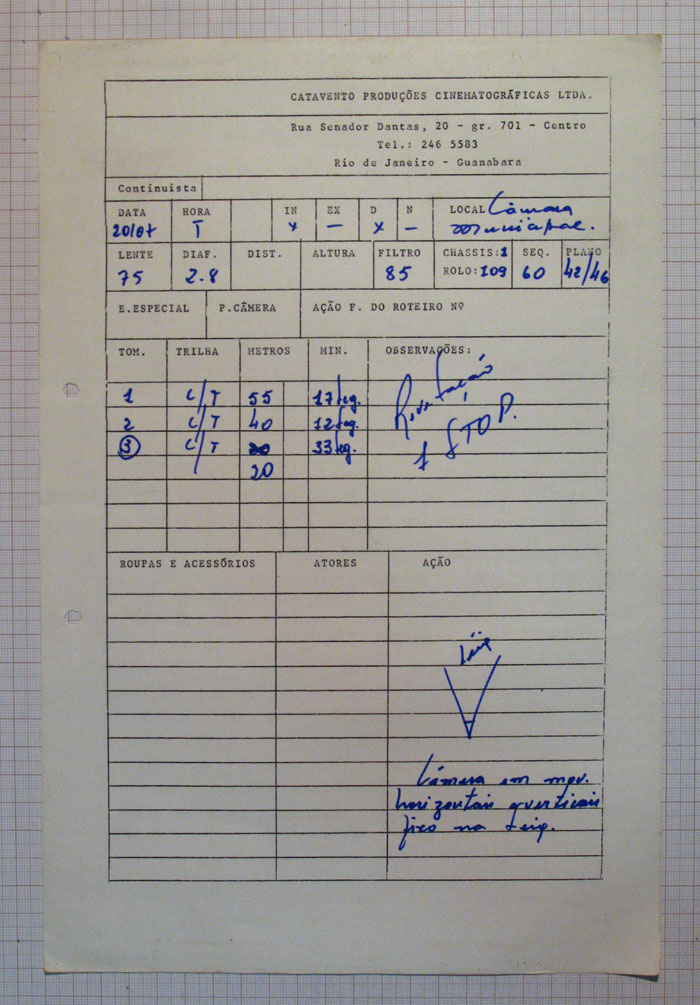 CATAVENTO PRODUÇÕES CINEMATOGRÁFICAS LTDA.
Rua Senador Dantas, 20 - gr. 701 - Centro
Tel.: 246 5583
Rio de Janeiro - Guanabara
Continuista
DATA HORA IN EX D N LOCAL Câmara
20/07 T x — x — municipal.
LENTE DIAF. DIST. ALTURA FILTRO CHASSIS:1 SEQ. PLANO
75 2.8 85 ROLO:109 60 42/46
E.ESPECIAL P.CÂMERA AÇÃO F. DO ROTEIRO Nº
TOM. TRILHA METROS MIN. OBSERVAÇÕES:
1 C/T 55 17seg.
2 C/T 40 12seg. 1 STOP.
3 C/T 33seg.
20
ROUPAS E ACESSÓRIOS ATORES AÇÃO
Câmera em mov.
horizontais e verticais
fixo na